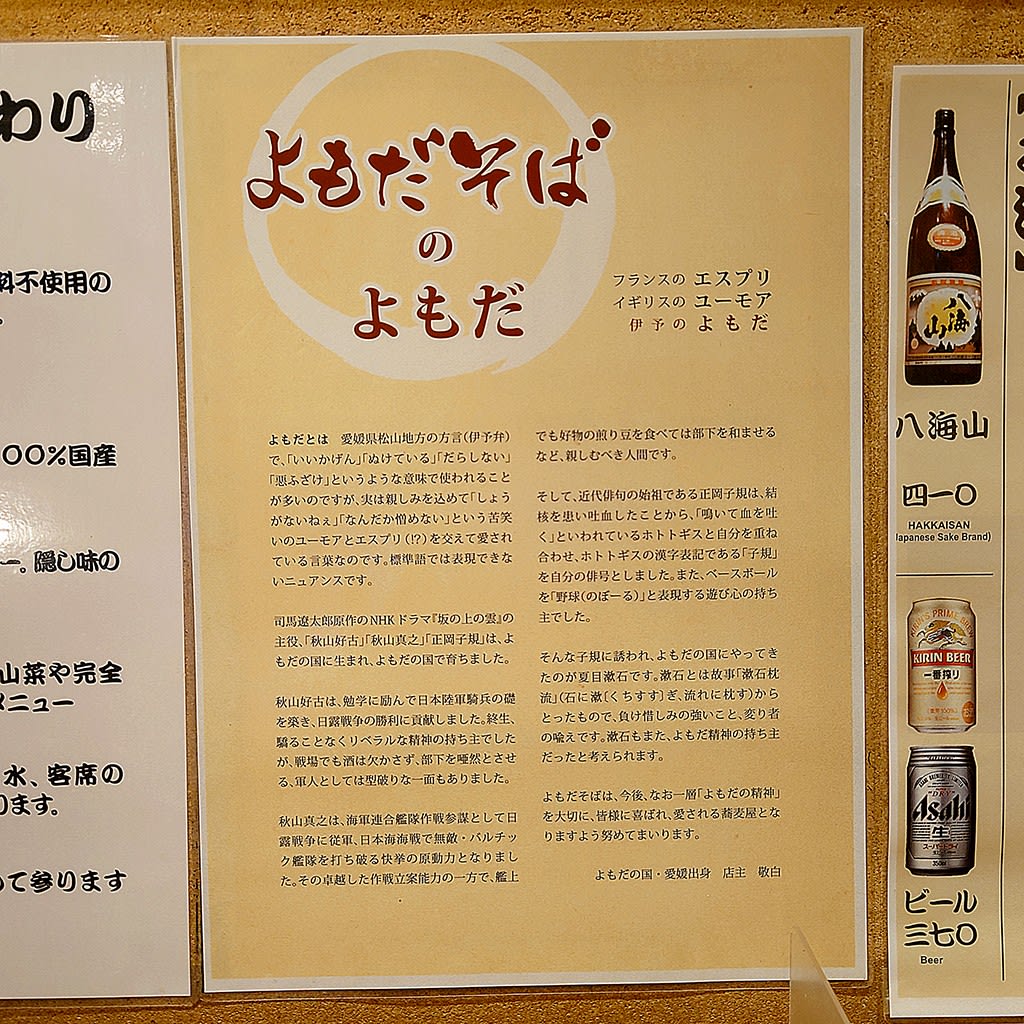 わり
料不使用の
００％国産
隠し味の
山菜や完全
メニュー
水、客席の
ります。
て参ります
よもだそば
の
よもだ
フランスの エスプリ
イギリスの ユーモア
伊予の よもだ
よもだとは　愛媛県松山地方の方言(伊予弁)
で、「いいかげん」「ぬけている」「だらしない」
「悪ふざけ」というような意味で使われること
が多いのですが、実は親しみを込めて「しょう
がないねぇ」「なんだか憎めない」という苦笑
いのユーモアとエスプリ(!?)を交えて愛され
ている言葉なのです。標準語では表現できな
いニュアンスです。
司馬遼太郎原作のNHKドラマ『坂の上の雲』の
主役、「秋山好古」「秋山真之」「正岡子規」は、よ
もだの国に生まれ、よもだの国で育ちました。
秋山好古は、勉学に励んで日本陸軍騎兵の礎
を築き、日露戦争の勝利に貢献しました。終生、
驕ることなくリベラルな精神の持ち主でした
が、戦場でも酒は欠かさず、部下を唖然とさせ
る、軍人としては型破りな一面もありました。
秋山真之は、海軍連合艦隊作戦参謀として日
露戦争に従軍、日本海海戦で無敵・バルチッ
ク艦隊を打ち破る快挙の原動力となりまし
た。その卓越した作戦立案能力の一方で、艦上
でも好物の煎り豆を食べては部下を和ませる
など、親しむべき人間です。
そして、近代俳句の始祖である正岡子規は、結
核を患い吐血したことから、「鳴いて血を吐
く」といわれているホトトギスと自分を重ね
合わせ、ホトトギスの漢字表記である「子規」
を自分の俳号としました。また、ベースボール
を「野球(のぼーる)」と表現する遊び心の持ち
主でした。
そんな子規に誘われ、よもだの国にやってき
たのが夏目漱石です。漱石とは故事「漱石枕
流」(石に漱(くちすす)ぎ、流れに枕す)から
とったもので、負け惜しみの強いこと、変り者
の喩えです。漱石もまた、よもだ精神の持ち主
だったと考えられます。
よもだそばは、今後、なお一層「よもだの精神」
を大切に、皆様に喜ばれ、愛される蕎麦屋とな
りますよう努めてまいります。
よもだの国・愛媛出身　店主　敬白
八海山
八海山
四一〇
HAKKAISAN
Japanese Sake Brand)
KIRIN BEER
一番搾り
Asahi
生
スーパードライ
350ml
ビール
三七〇
Beer